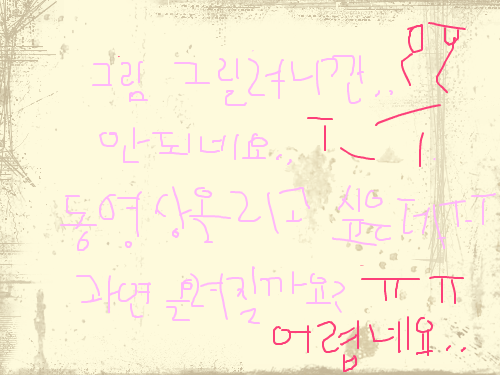 그림 그릴려니깐..
안되네요..
동영상올리고 싶은데ㅠㅠ
과연 올려질까요? ㅠㅠ
어렵네요..